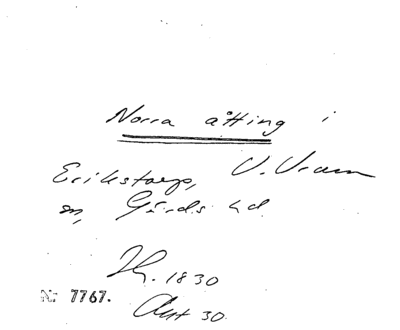 Norra åtting i
Erikstorp, V. Vram
sn, Gärds hd.
1830
Nr 7767.
Akt 30.